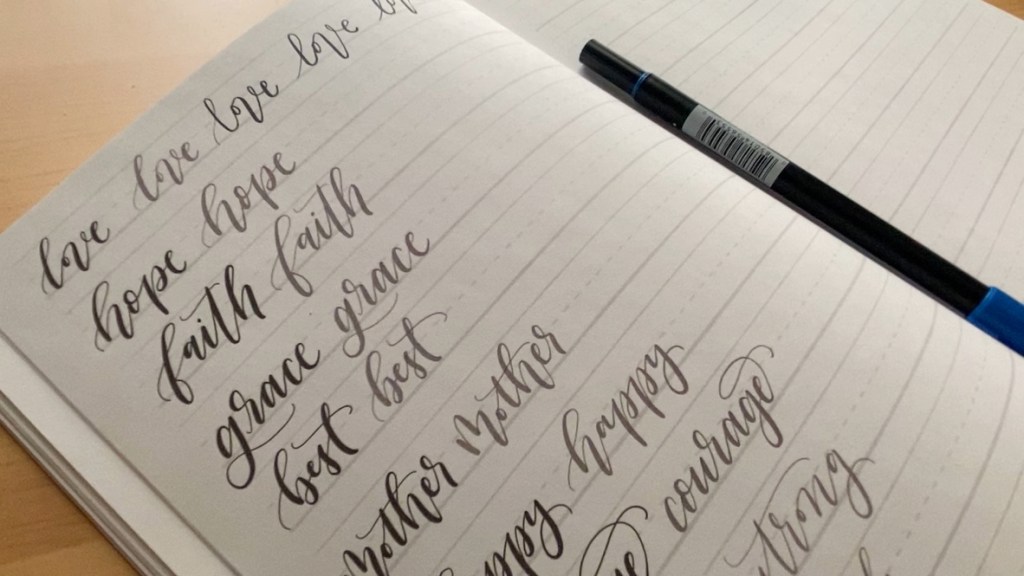 love love love love
hope hope
faith faith
grace grace
best best
Mother Mother
happy
courage